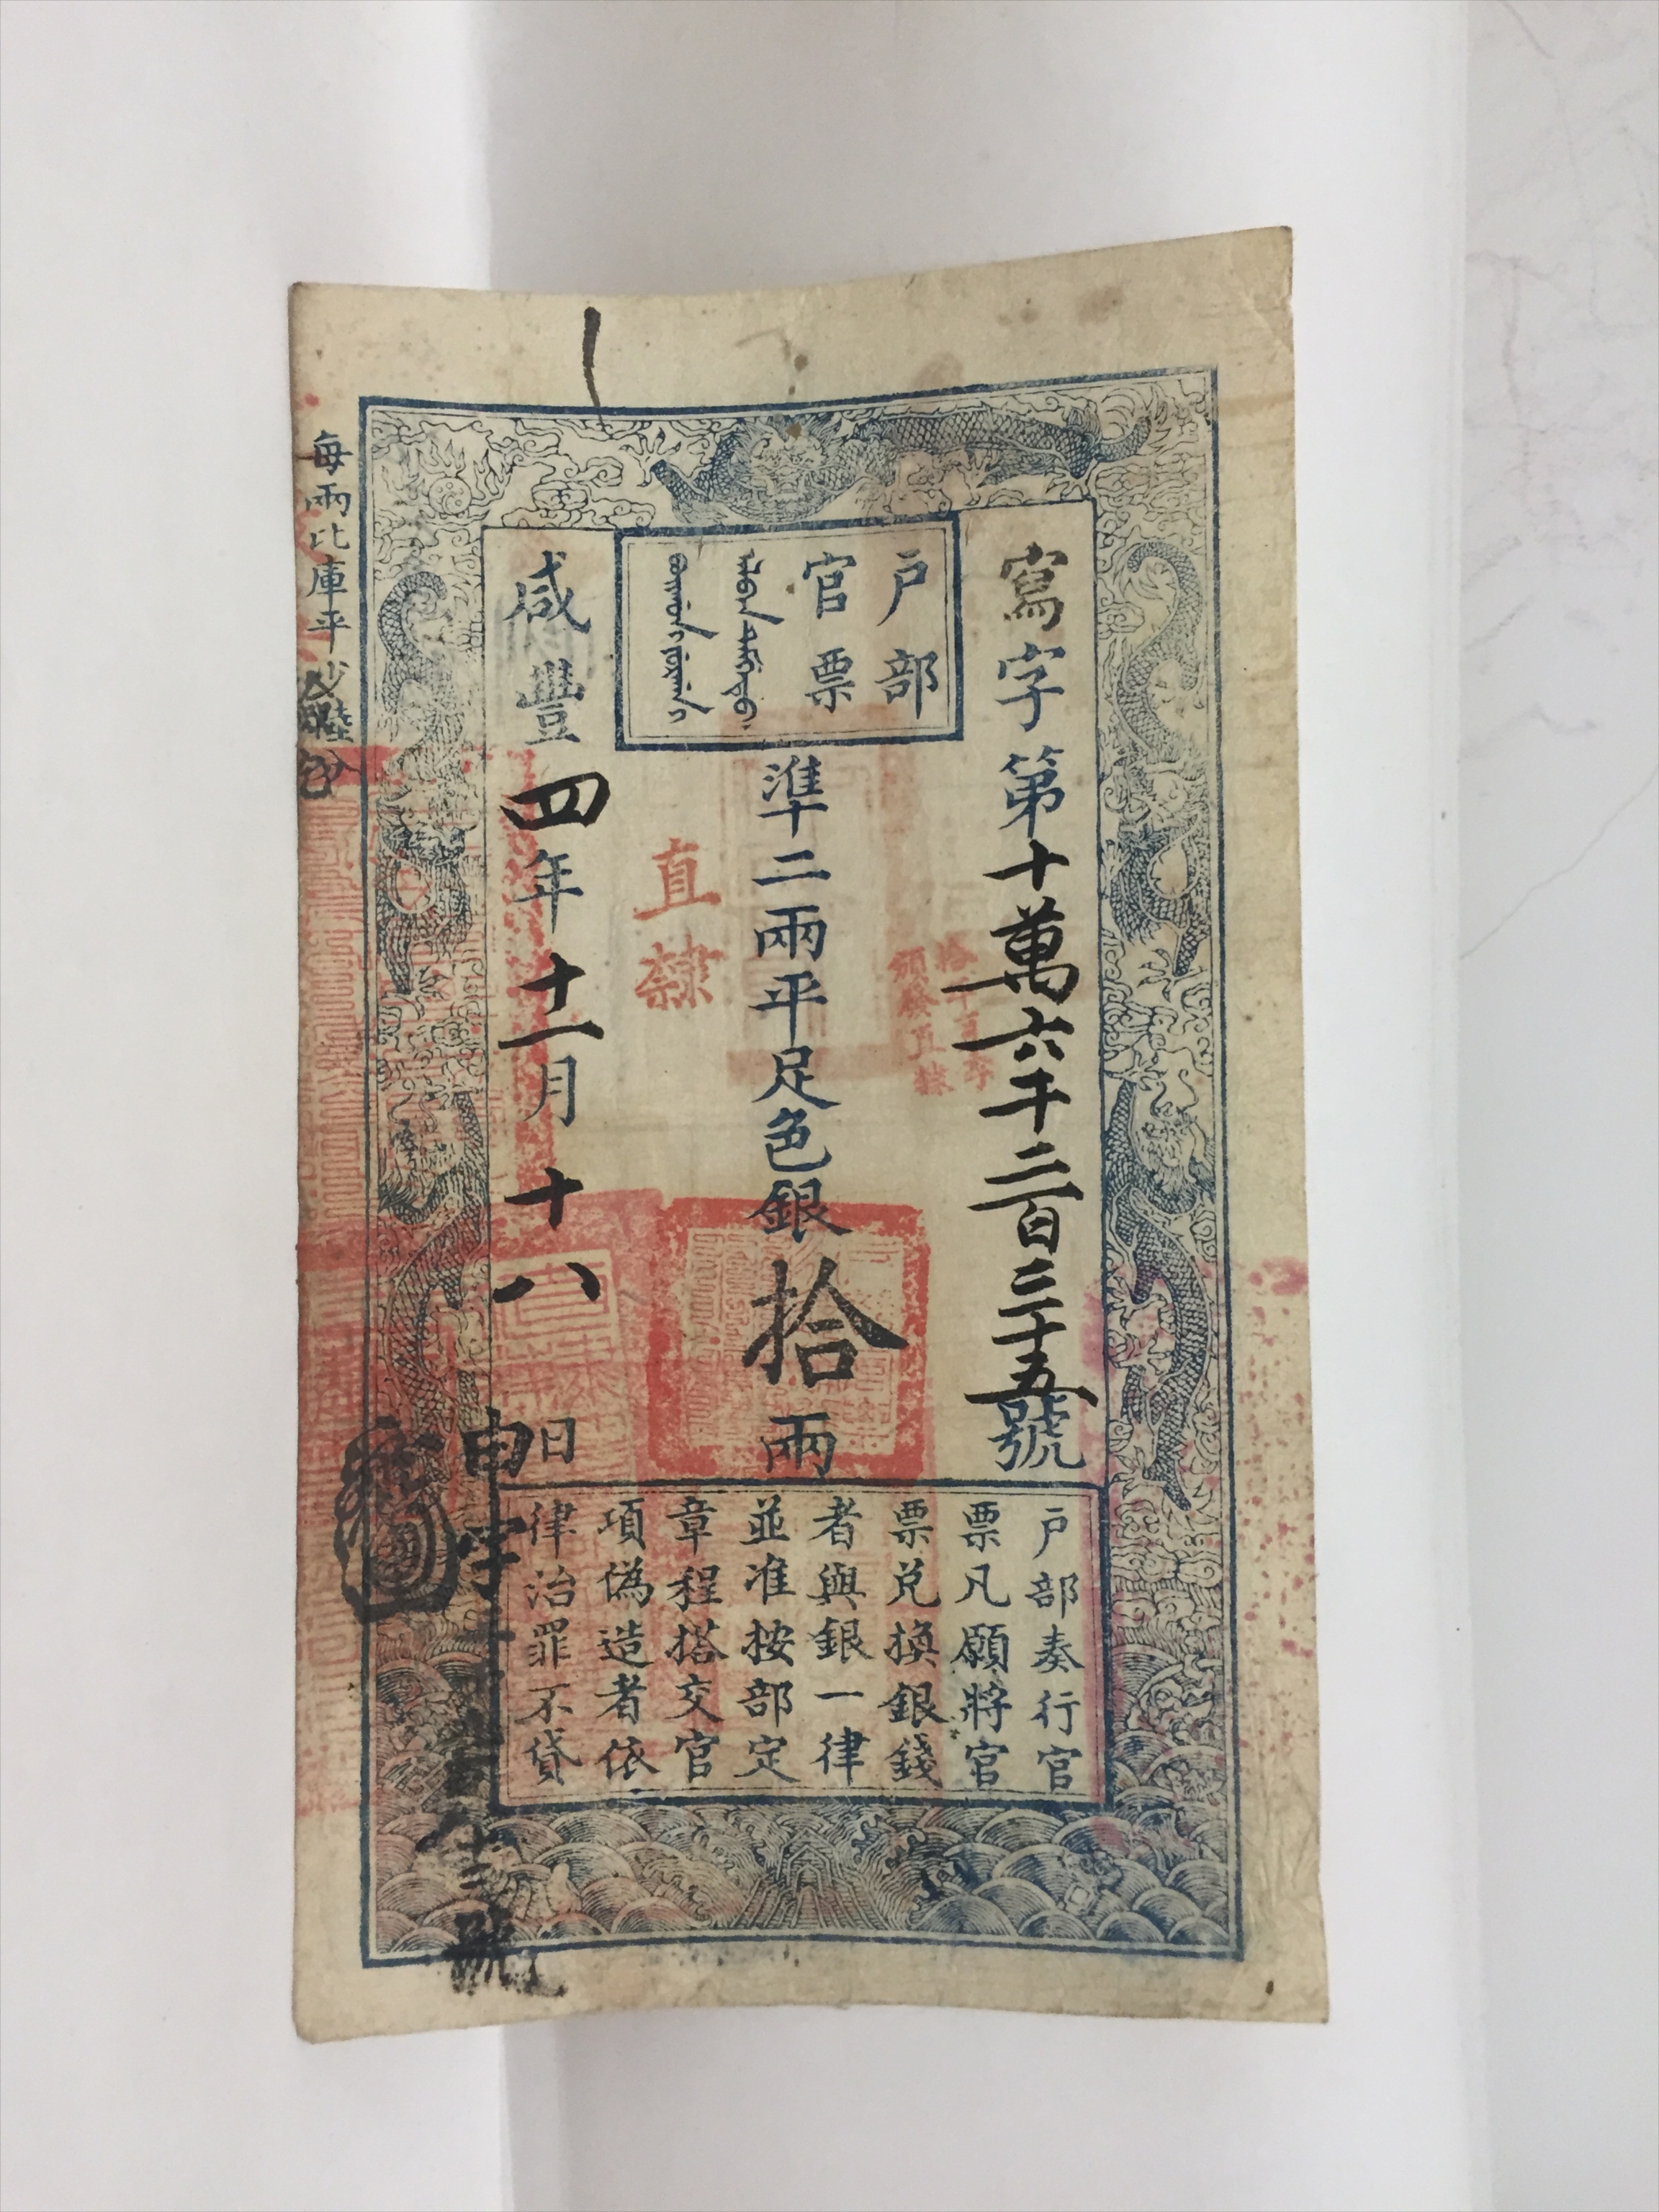 寫字第十萬六千二百三十五號
戶部
官票
準二兩平足色銀拾兩
直隸
頒發直隸
咸豐四年十一月十八日
戶部奏行官
票凡願將官
票兌換銀錢
者與銀一律
並准按部定
章程搭交官
項偽造者依
律治罪不貸
每兩比庫平少陸分
申字
號